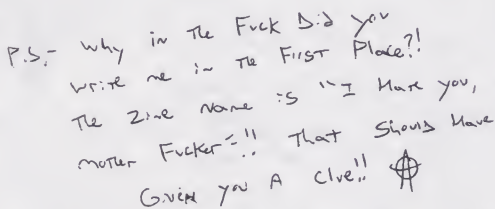 P.S.- Why in The Fuck Did you
write me in The First Place?!
The Zine Name is "I Hate you,
Mother Fucker"!! That Should Have
Given you A Clue!!